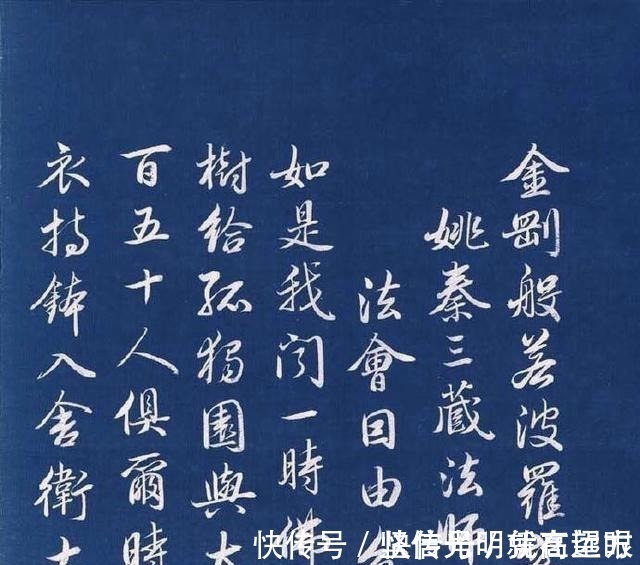 金剛般若波羅
姚秦三藏法師
法會因由
如是我闻一時佛
樹給孤獨園與大
百五十人俱爾時
衣持鉢入舍衛大
快传号／